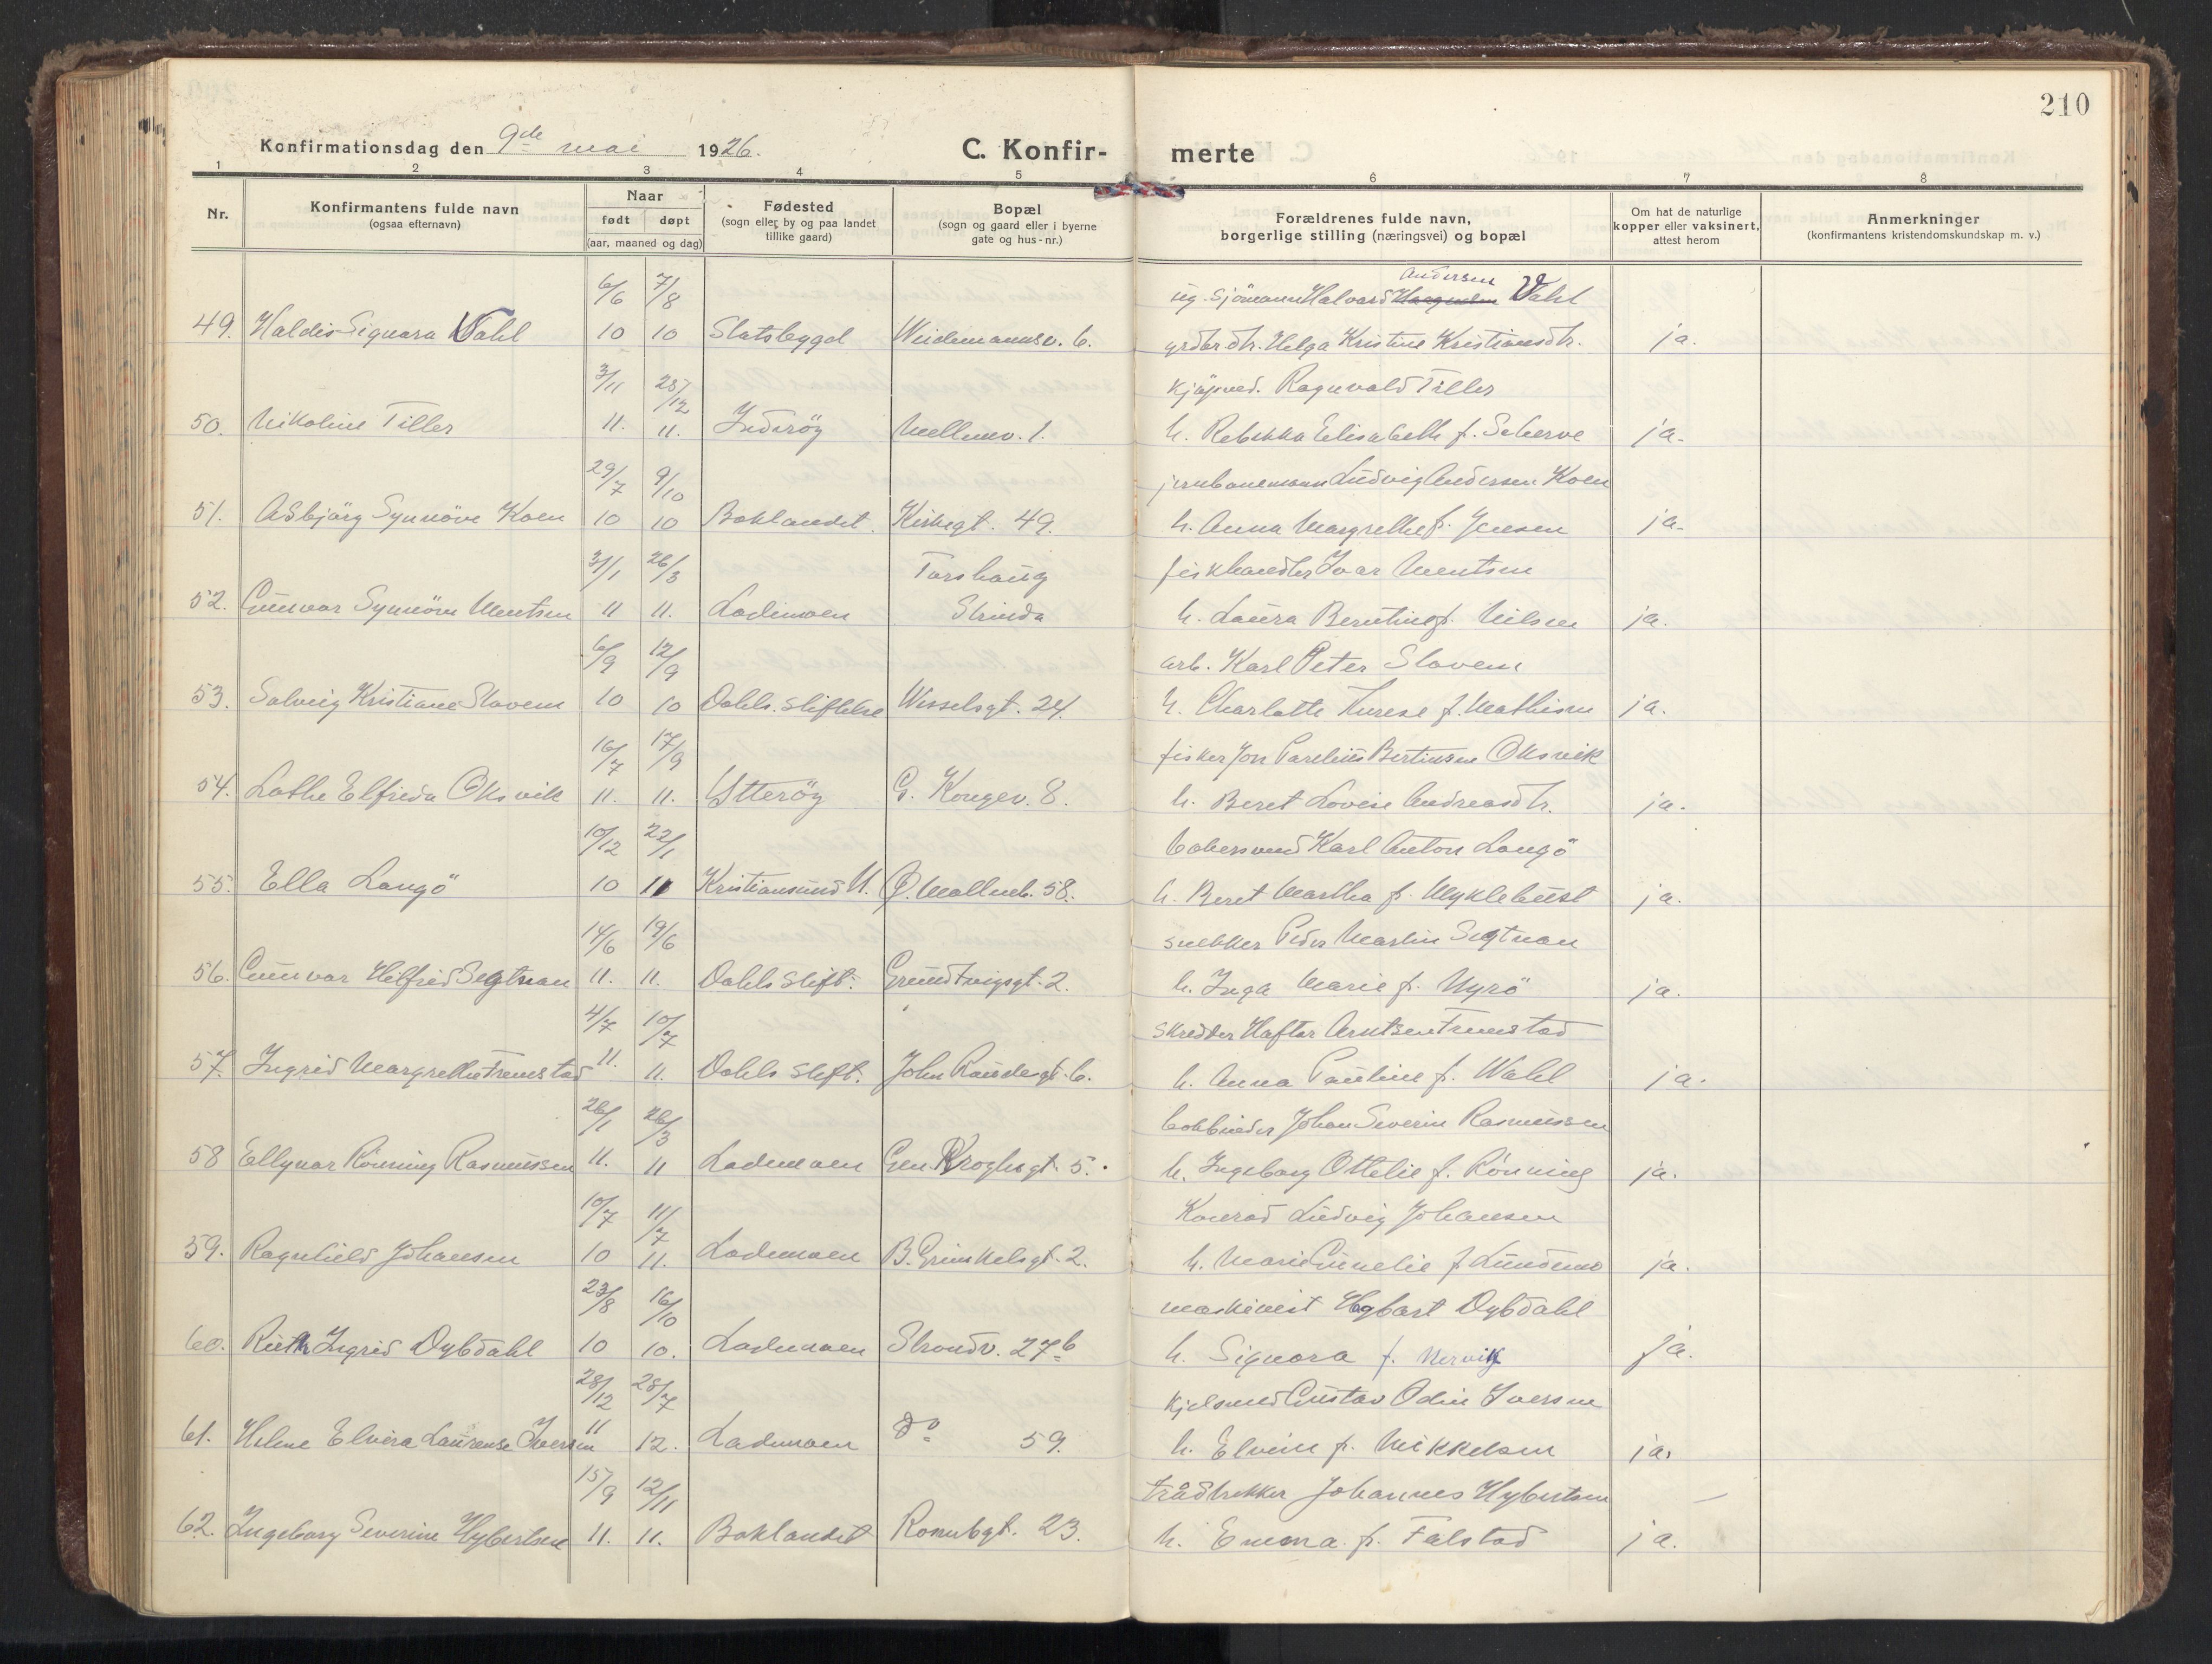 210
Konfirmationsdag den 9de mai 1926.
C. Konfir- merte
1 2 3 4 5 6 7 8
Nr.
Konfirmantens fulde navn
(ogsaa efternavn)
Naar
født døpt
(aar, maaned og dag)
Fødested
(sogn eller by og paa landet
tillike gaard)
Bopæl
(sogn og gaard eller i byerne
gate og hus-nr.)
Forældrenes fulde navn,
borgerlige stilling (næringsvei) og bopæl
Om hat de naturlige
kopper eller vaksinert,
attest herom
Anmerkninger
(konfirmantens kristendomskundskap m. v.)
Andersen
6/6 7/8 ug. sjömann Halvard Wahl
49. Haldis Signora Wahl 10 10 Statsbygd Weidemannsv. 6. grdbr. dtr. Helga Kristine Kristiansdtr. ja.
3/11 25/12 kjöpmd. Ragnvald Tiller
50. Nikoline Tiller 11. 11. Inderöy Mellemv. 1. h. Rebekka Elisabeth f. Scherve ja.
29/7 9/10 jernbanemann Ludvig Andersen Koen
51. Asbjörg Synnöve Koen 10 10 Baklandet. Kirkegt. 49. h. Anna Margrethe f. Jensen ja.
31/1 26/3 Torshaug fiskhandler Ivar Mentsen
52. Gunvor Synnöve Mentsen 11 11. Lademoen Strinda h. Laura Berntine f. Nilsen ja.
6/9 12/9 arb. Karl Peter Slovem
53. Solveig Kristiane Slovem 10 10 Dahls. stiftelse Wesselsgt. 24. h. Charlotte Therese f. Mathisen ja.
16/7 17/9 fisker Jon Parelius Bertinsen Oksvik
54. Lathe Elfrida Oksvik 11. 11. Ytteröy G. Kongev. 8. h. Beret Lovise Andreasdtr. ja.
10/12 22/1 bakersvend Karl Anton Langö
55. Ella Langö 10 11 Kristiansund N. Ø. Mollenb. 58. h. Beret Martha f. Myklebust ja.
14/6 19/6 snekker Peder Martin Segtnan
56. Gunvor Helfrid Segtnan 11. 11. Dahls stift. Grundtvigsgt. 2. h. Inga Marie f. Myrö ja.
4/7 10/7 skredder Haftor Arntsen Tremstad
57. Ingrid Margrethe Tremstad 11. 11. Dahls stift. John Raudesgt. 6. h. Anna Pauline f. Wahl ja.
26/1 26/3 bokbinder Johan Severin Rasmussen
58 Ellynor Rönning Rasmussen 11. 11 Lademoen Gen. Kroghsgt. 5. h. Ingeborg Ottelie f. Rönning ja.
10/7 11/7 Konrad Ludvig Johansen
59. Ragnhild Johansen 10 11. Lademoen B. Grimkelsgt. 2. h. Marie Emelie f. Lundemo ja.
23/8 16/10 maskinist Hagbart Dybdahl
60. Ruth Ingrid Dybdahl 10 10. Lademoen Strandv. 27b h. Signora f. Nervik ja.
28/12 28/7 kjelsmed Gustav Odin Iversen
61. Helene Elvira Laurense Iversen 11 12. Lademoen do 59. h. Elvine f. Mikkelsen ja.
15/9 12/11 trådtrekker Johannes Hybertsen
62. Ingeborg Severine Hybertsen 11. 11. Baklandet Rosenbgt. 23. h. Emma f. Falstad ja.